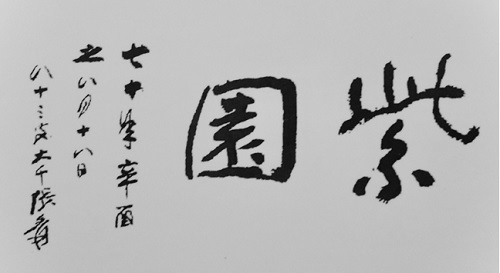 紫園
七十年辛酉
之八月十八日
八十三叟大千張爰